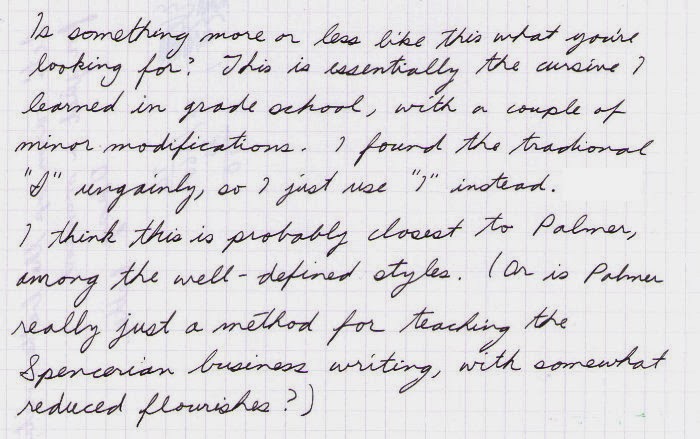 Is something more or less like this what you're
looking for? This is essentially the cursive I
learned in grade school, with a couple of
minor modifications. I found the tradional
"I" ungainly, so I just use "I" instead.
I think this is probably closest to Palmer,
among the well-defined styles. (Or is Palmer
really just a method for teaching the
Spencerian business writing, with somewhat
reduced flourishes?)